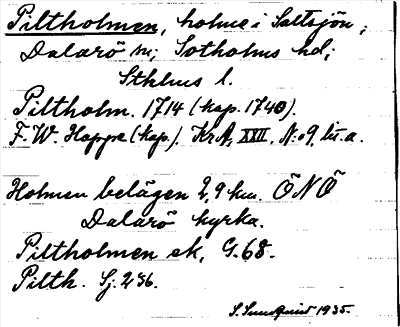 Piltholmen, holme i Saltsjön;
Dalarö sn; Sotholms hd;
Sthlms l.
Piltholm. 1714 (kop. 1740).
F. W. Hoppe (kop.). KrA, XXII, N:o 9, lit. a.
Holmen belägen 2,9 km. ÖNÖ
Dalarö kyrka.
Piltholmen ek, G. 68.
Pilth. Sj. 236.
S. Sundquist 1935.